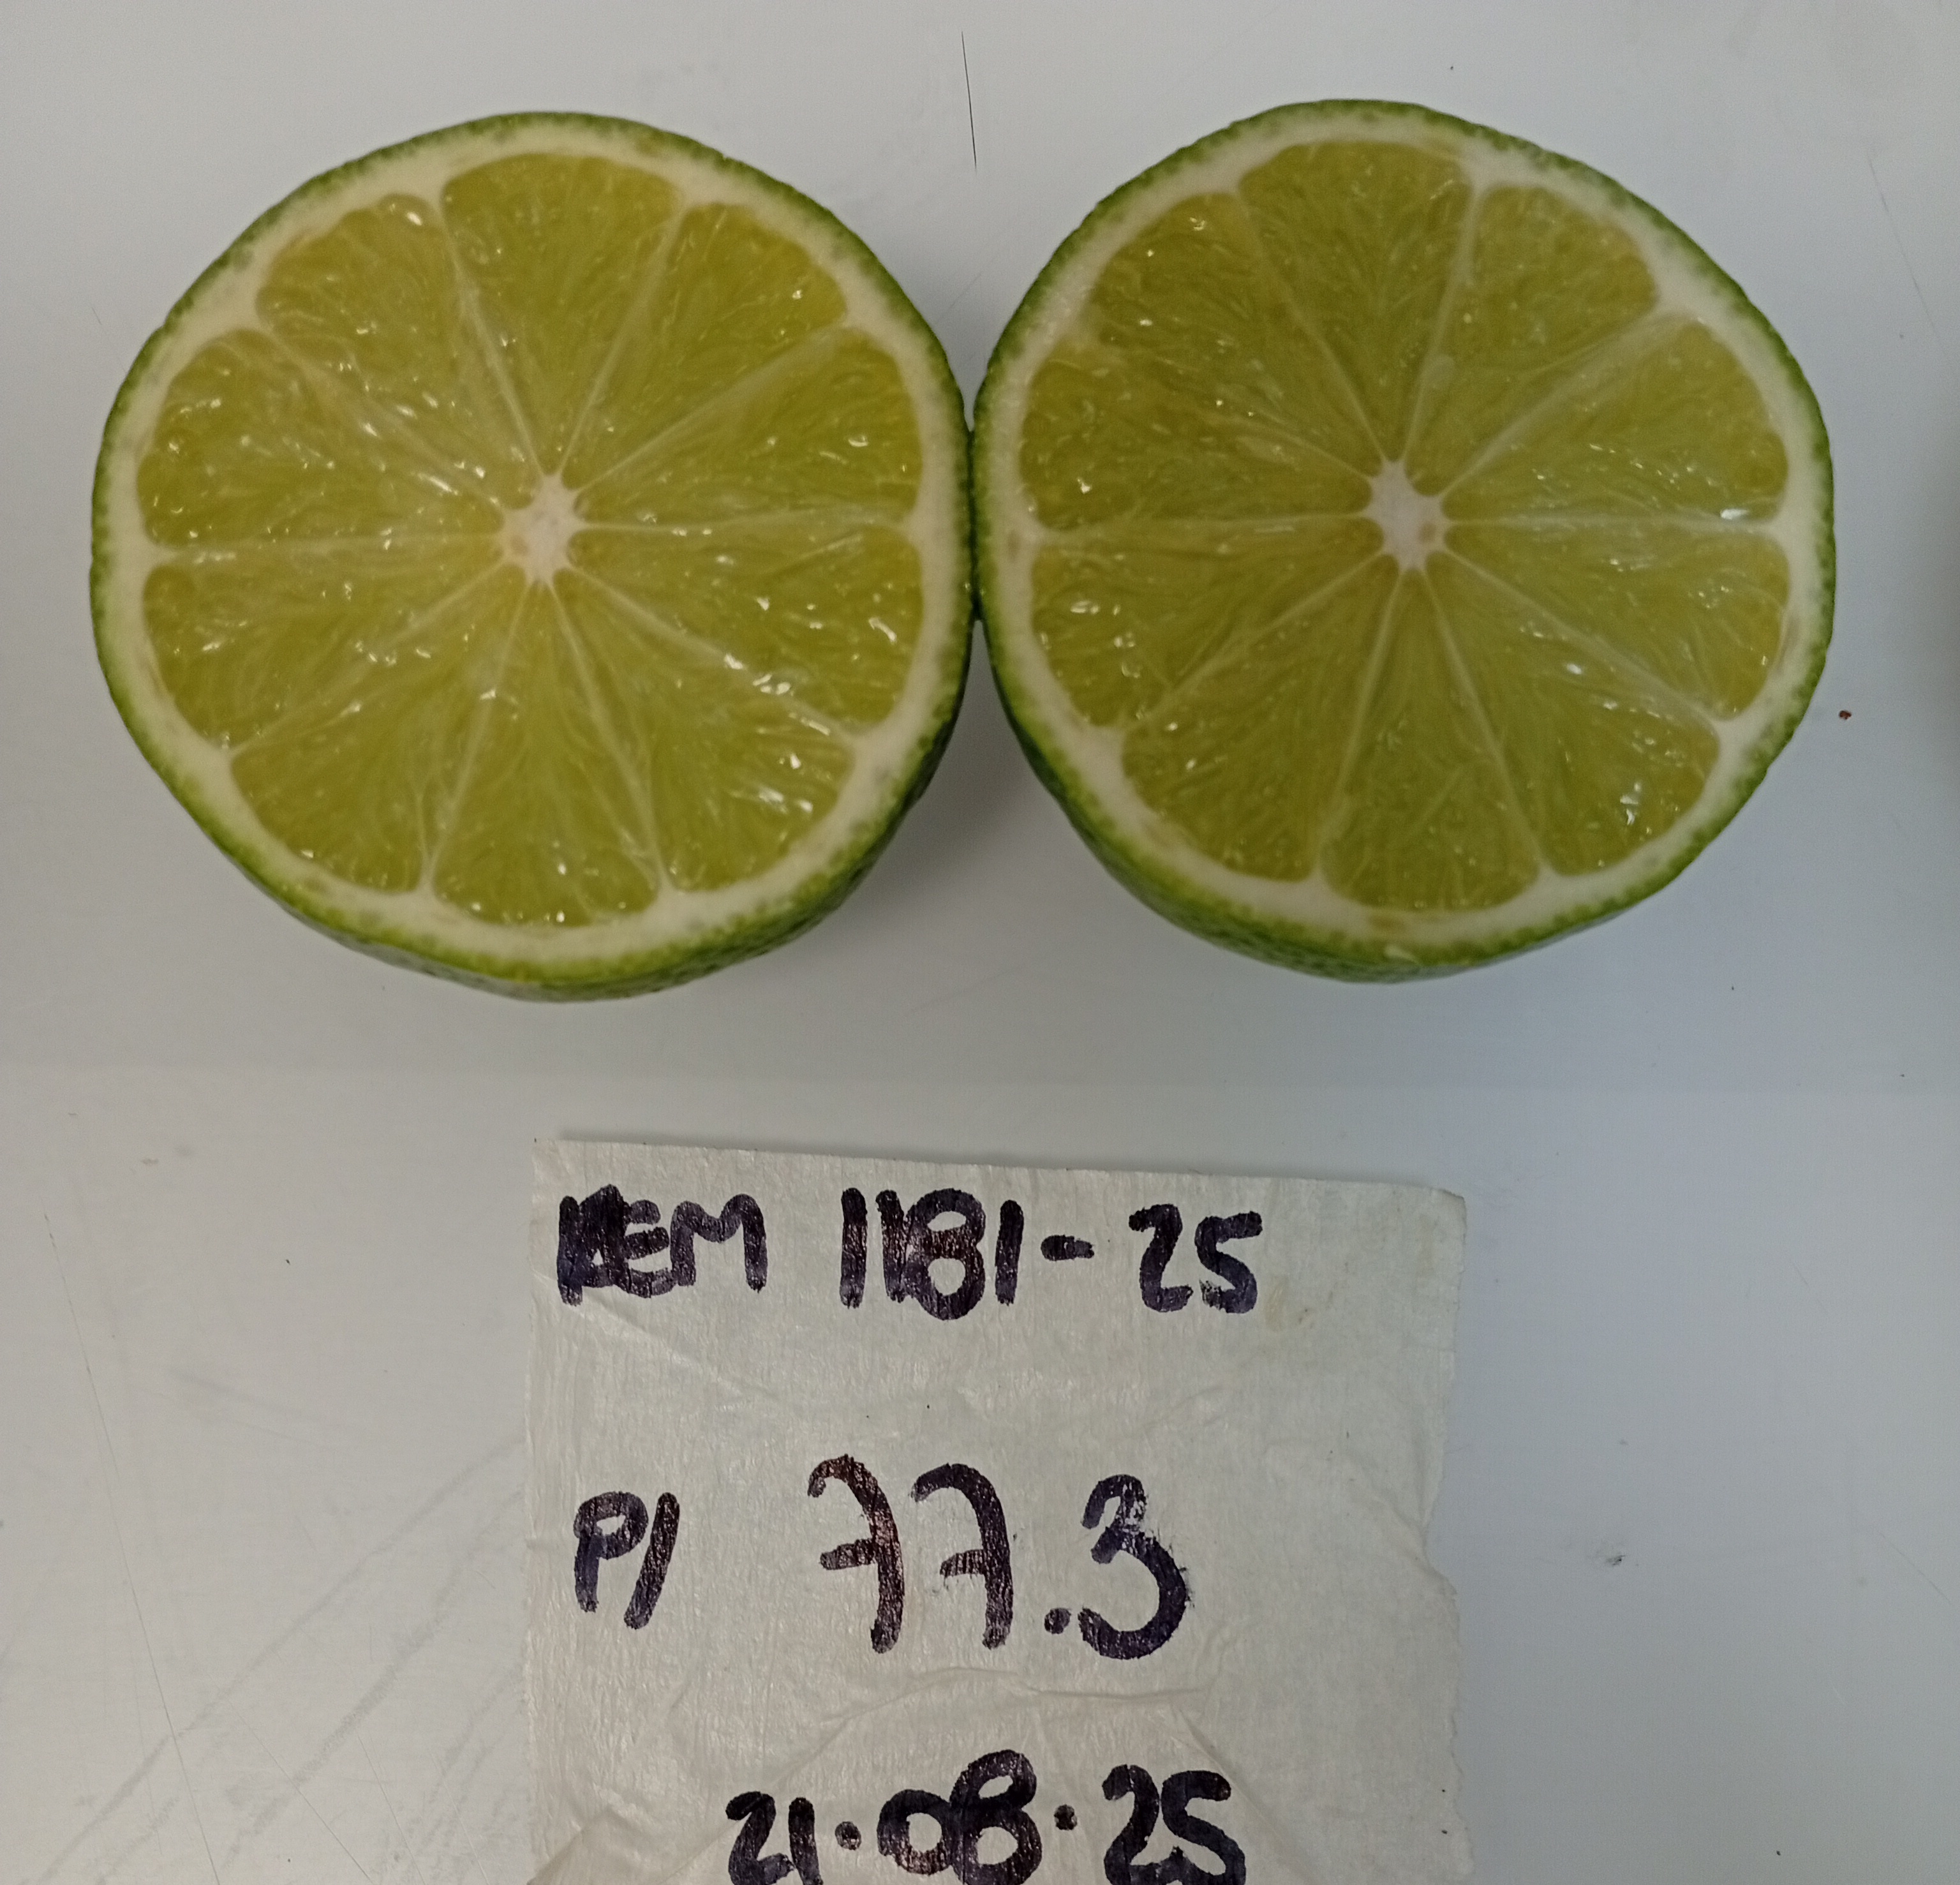 REM 1181-25
P/ 77.3
21.08.25